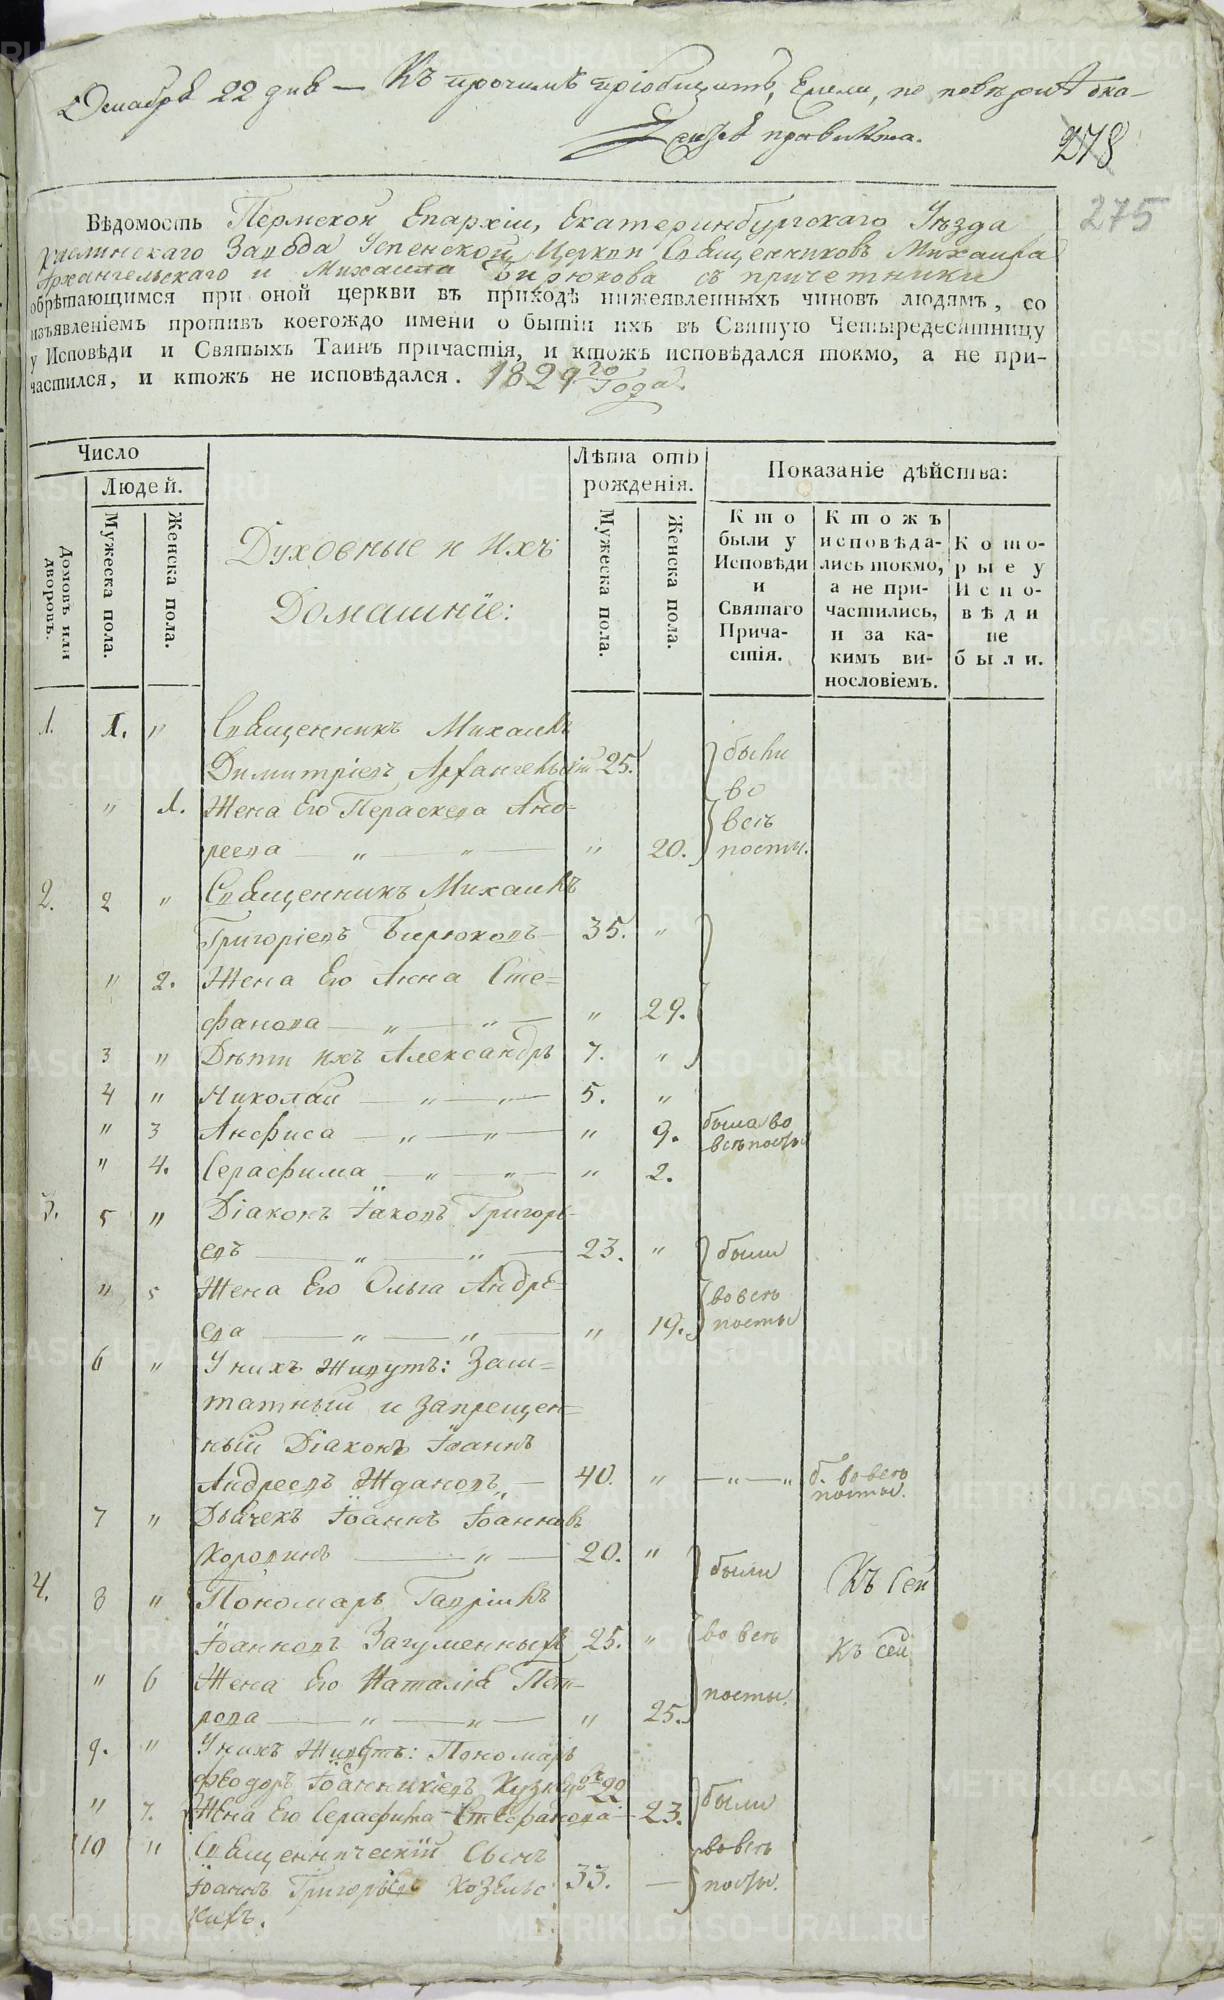 22 дня — Къ прочимъ приобщить,
278
275
Вѣдомость Пермской Епархіи, Екатеринбургскаго Уѣзда
Каслинскаго Завода Успенской Церкви Священниковъ Михаила
Архангельскаго и Михаила Бирюкова съ причетники
обрѣтающимся при оной церкви въ приходѣ нижеявленныхъ чиновъ людямъ, со
изъявленіемъ противъ коегождо имени о бытіи ихъ въ Святую Четыредесятницу
у Исповѣди и Святыхъ Таинъ причастія, и ктожъ исповѣдался токмо, а не при-
частился, и ктожъ не исповѣдался. 1829го Года.
Число
Людей.
Домовъ или дворовъ.
Мужеска пола.
Женска пола.
Духовные и Ихъ
Домашніе:
Лѣта отъ
рожденія.
Мужеска пола.
Женска пола.
Показаніе дѣйства:
Кто
были у
Исповѣди
и
Святаго
Прича-
стія.
Ктожъ
исповѣда-
лись токмо,
а не при-
частились,
и за ка-
кимъ ви-
нословіемъ.
Кото-
рые у
Испо-
вѣди
не
были.
1. 1. " Священникъ Михаилъ
Димитріевъ Архангельскій 25. были
" 1. Жена Его Параскева Анд- во
реева — " — " — " 20. всѣ посты.
2. 2 " Священникъ Михаилъ
Григоріевъ Бирюковъ 35. "
" 2. Жена Его Анна Сте-
фанова — " — " — " 29.
3 " Дѣти ихъ Александръ 7. "
4 " Николай — " — " — 5. "
" 3 Анфиса — " — " — " 9. была во всѣ посты
" 4. Серафима — " — " — " 2.
3. 5 " Діаконъ Іаковъ Григорь-
евъ — " — " — 23. " были
" 5 Жена Его Ольга Андре- во всѣ
ева — " — " — " 19. посты
6 " У нихъ Живутъ: Заш-
татный и запрещен-
ный Діаконъ Іоаннъ
Андреевъ Ждановъ — 40. " — " — " б. во всѣ посты.
7 " Дьячекъ Іоаннъ Іоанновъ
Коровинъ — " — 20. " были
4. 8 " Пономарь Гавріилъ
Іоанновъ Загуменныхъ 25. " во всѣ
" 6 Жена Его Наталія Пет- посты.
рова — " — " — " 25.
Къ сей
Къ сей
9. " У нихъ Живутъ: Пономарь
Феодоръ Іоанникіевъ Кузнецовъ 22
" 7. Жена Его Серафима Стефанова — 23. были
10 " Священническій Сынъ во всѣ
Іоаннъ Григорьевъ Козельс 33. — посты.
кихъ.
METRIKI.GASO-URAL.RU